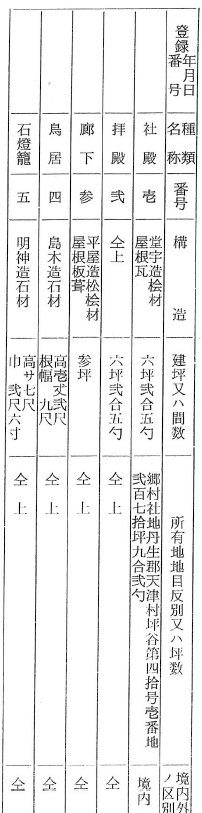 登録年月日番号
種類名称
番号
構造
建坪又ハ間数
所有地地目反別又ハ坪数
境内外ノ区別
社殿
壱
堂宇造桧材
屋根瓦
六坪弐合五勺
郷村社地丹生郡天津村坪谷第四拾号壱番地
弐百七拾坪九合弐勺
境内
拝殿
弐
仝上
六坪弐合五勺
仝上
仝
廊下
参
平屋造松桧材
屋根板葺
参坪
仝上
仝
鳥居
四
島木造石材
高壱丈弐尺
根幅 九尺
仝上
仝
石燈籠
五
明神造石材
高サ七尺
巾弐尺六寸
仝上
仝